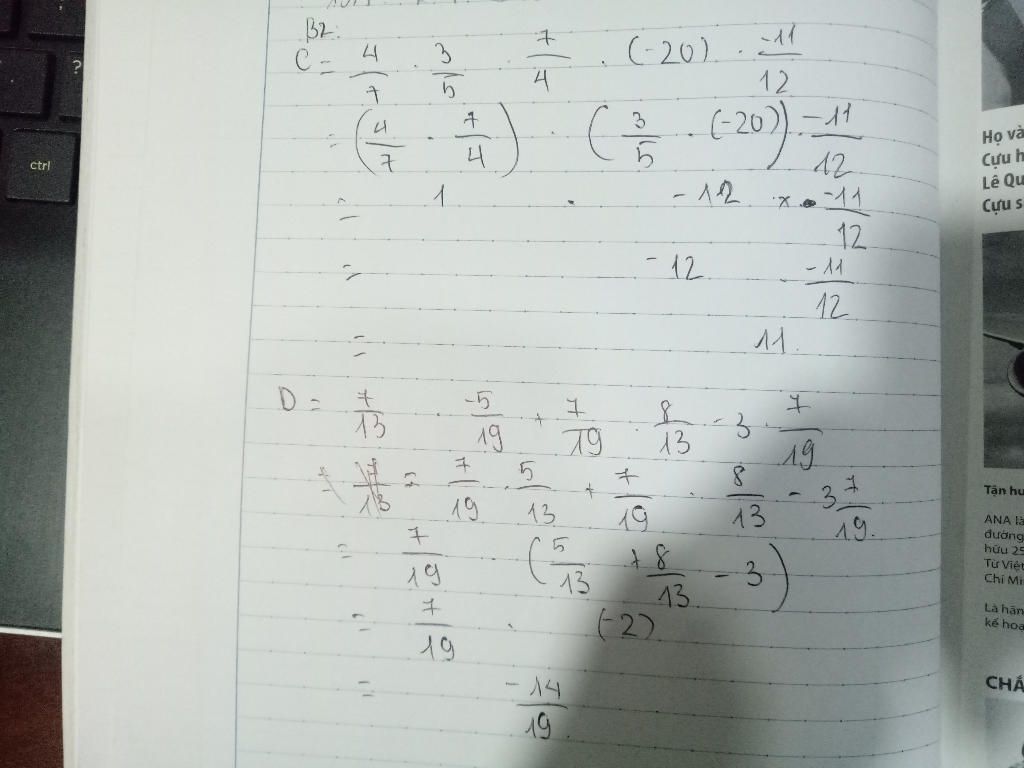 ?
ctrl
B2:
C = 4/7 . 3/5 . 7/4 . (-20) . -11/12
= (4/7 . 7/4) . (3/5 . (-20)) . -11/12
= 1 . -12 x . -11/12
= -12 . -11/12
= 11.
D = 7/13 . -5/19 + 7/19 . 8/13 - 3 . 7/19
= 7/19 . 5/13 + 7/19 . 8/13 - 3 7/19.
= 7/19 . (5/13 + 8/13 - 3)
= 7/19 . (-2)
= -14/19.
Họ và
Cựu h
Lê Qu
Cựu s
Tận hu
ANA là
đường
hữu 25
Từ Việt
Chí Mi
Là hãn
kế hoạ
CHẮ